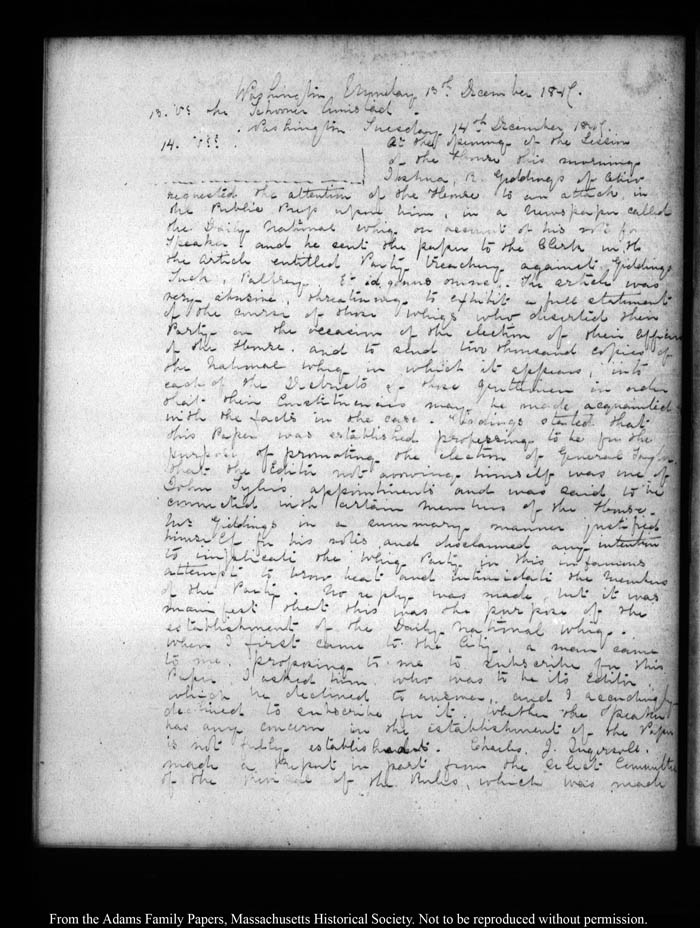 Washington Monday 13th December 1847.
13. VI. the Schooner Amistad.
Washington Tuesday 14th December 1847.
14. VII. At the opening of the Session
of the House this morning
Joshua, R. Giddings of Ohio
requested the attention of the House to an attack, in
the Public Press upon him, in a newspaper called
the Daily National Whig on account of his vote for
Speaker, and he sent the paper to the Clerk with
the article entitled Party treachery against Giddings
Tuck, Palfrey, Et id genus omne. The article was
very abusive, threatening to exhibit a full statement
of the course of those Whigs who deserted their
Party on the occasion of the election of their Officers
of the House. and to send two thousand copies of
the National Whig in which it appears, into
each of the Districts of those Gentlemen in order
that their Constituents may be made acquainted
with the facts in the case. Giddings stated that
this Paper was established professing to be for the
purpose of promoting the election of General Taylor
that the Editor not avowing himself was one of
John Tyler's appointments and was said to be
connected with certain members of the House.
Mr Giddings in a summary manner justified
himself for his votes, and disclaimed any intention
to implicate the Whig Party in this infamous
attempt to brow beat and intimidate the Members
of the Party. No reply was made, but it was
manifest that this was the purpose of the
establishment of the Daily National Whig.
When I first came to the City, a man came
to me, proposing to me to subscribe for this
Paper. I asked him who was to be its Editor
which he declined to answer, and I accordingly
declined to subscribe for it. Whether the Speaker
has any concern in the establishment of the Paper
is not fully established. Charles, J. Ingersoll.
made a Report in part from the select Committee
of the Revisal of the Rules, which was made
From the Adams Family Papers, Massachusetts Historical Society. Not to be reproduced without permission.